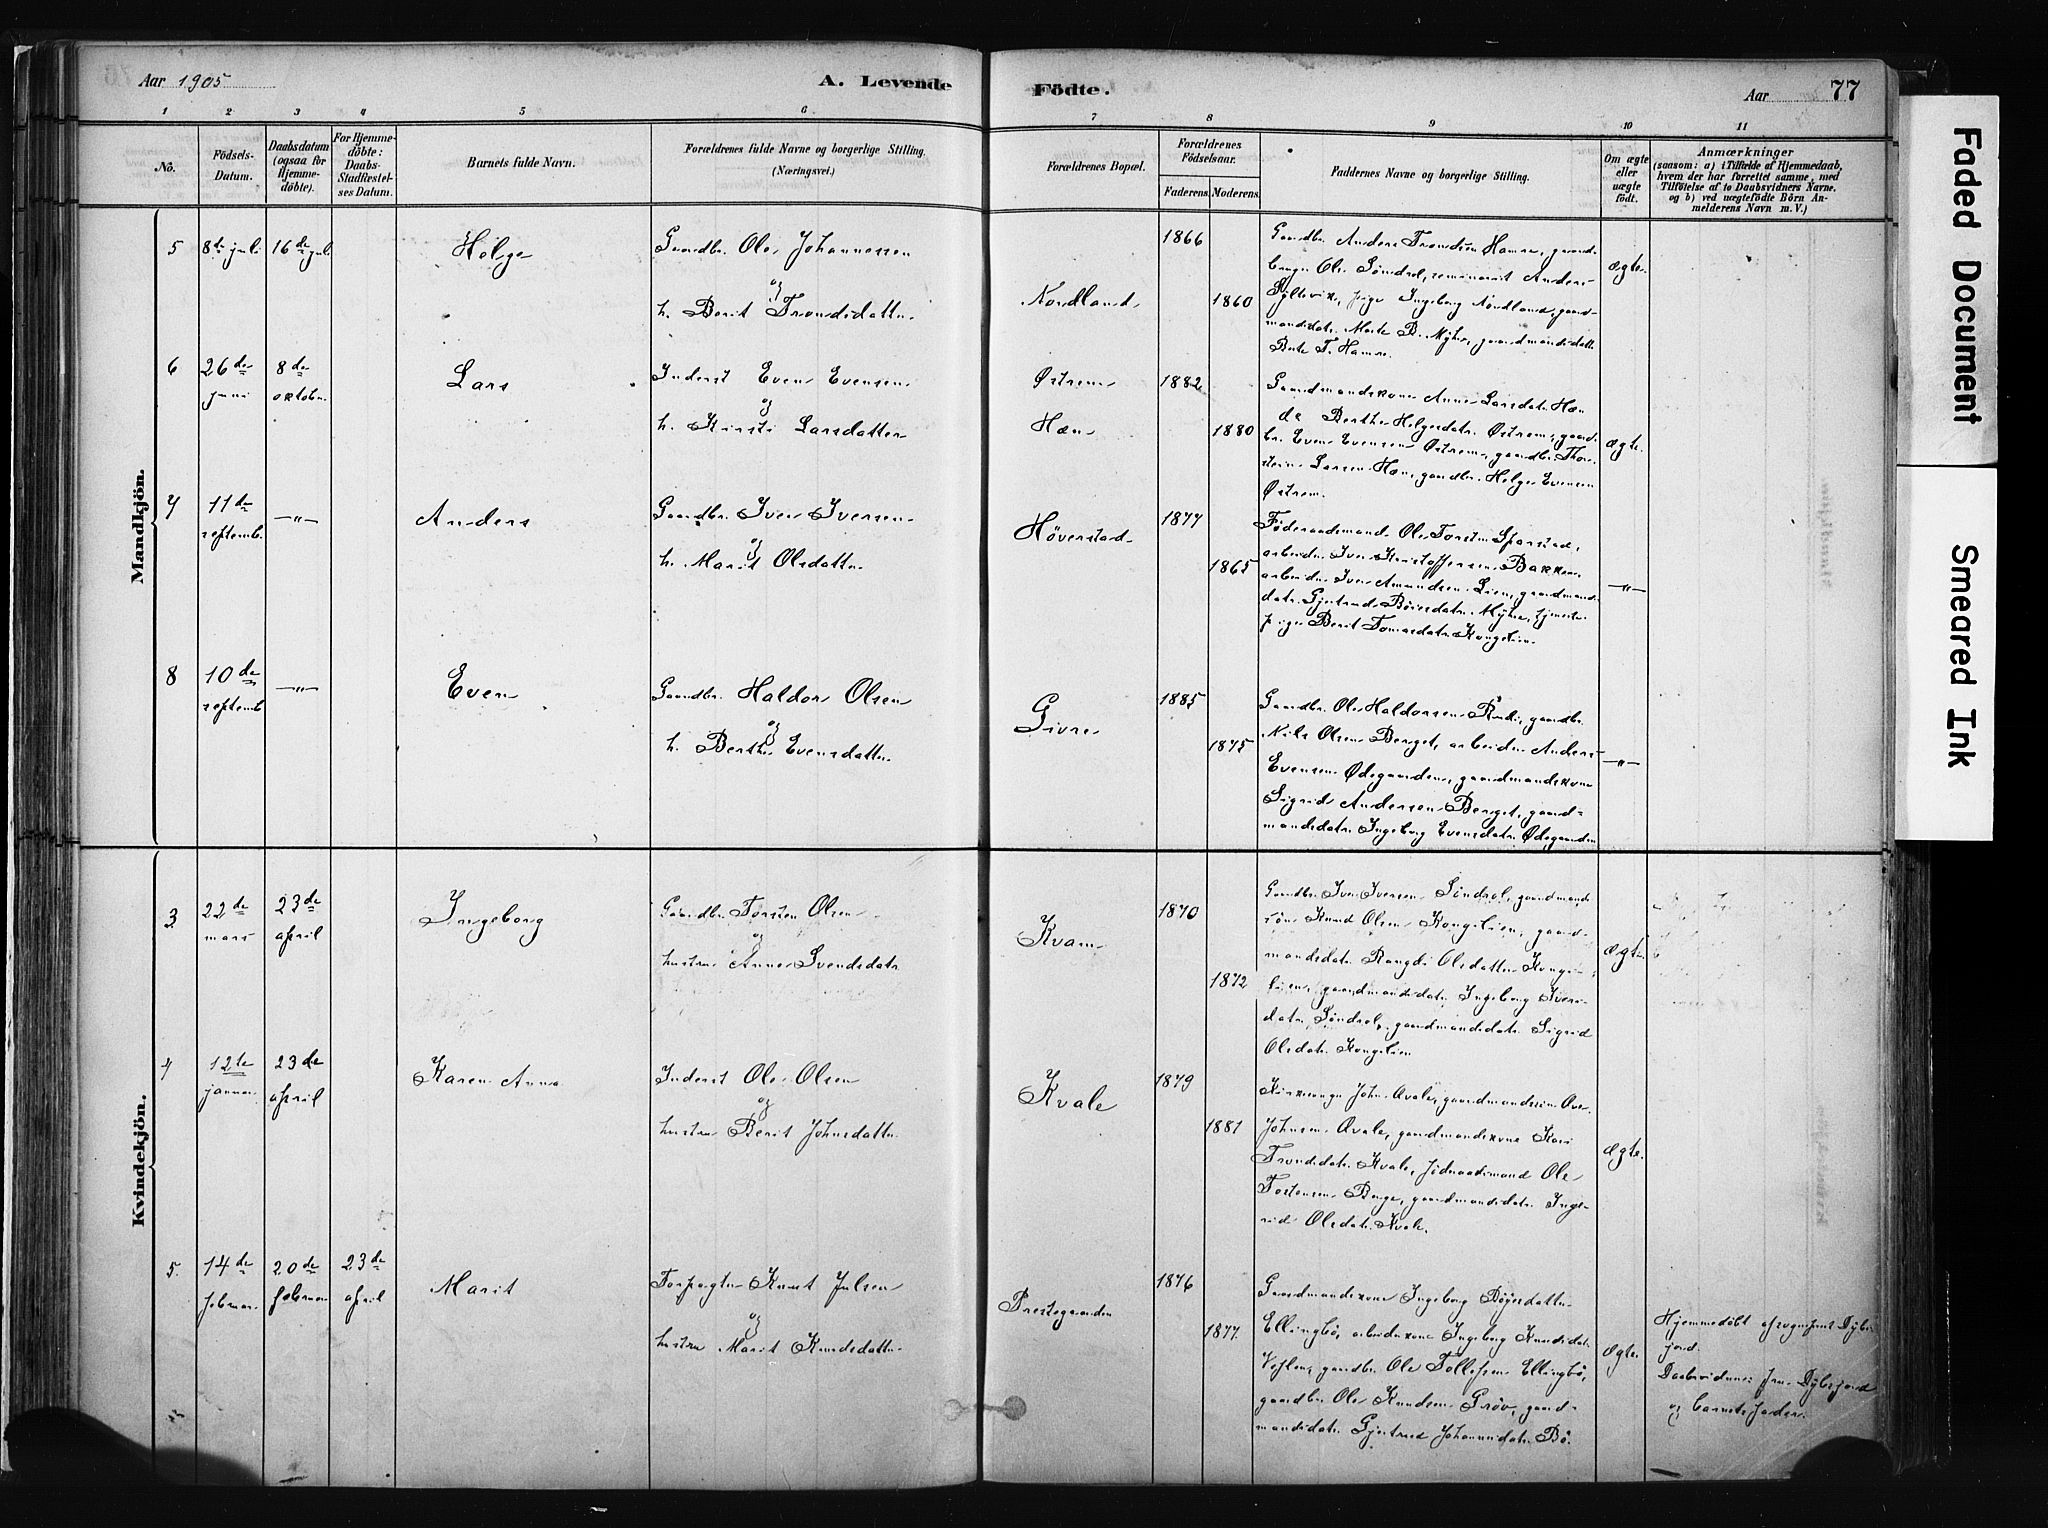 Aar 1905
A. Levende
Födte.
Aar
77
1 2 3 4 5 6 7 8 9 10 11
No.
Födsels-
Datum.
Daabsdatum
(ogsaa for
Hjemme-
döbte).
For Hjemme-
döbte:
Daabs-
Stadfæstel-
ses Datum.
Barnets fulde Navn.
Forældrenes fulde Navne og borgerlige Stilling.
(Næringsvei.)
Forældrenes Bopæl.
Forældrenes
Födselsaar.
Faderens.
Moderens.
Faddernes Navne og borgerlige Stilling.
Om ægte
eller
uægte
født.
Anmærkninger
(saasom: a) i Tilfælde af Hjemmedaab,
hvem der har forrettet samme, med
Tilføielse af to Daabsvidners Navne.
og b) ved uægtefödte Börn An-
melderens Navn m. V.)
Mandkjön.
5
8de juli
16de juli
Helge
Gaardbr. Ole Johannessen
og
h. Berit Trondsdatter
Nordland
1866
1860
Gaardbr. Anders Trondsen Hamre, gaard-
bruger Ole Söndrol, seminarist Anders
pige Ingeborg Nordland, gaard-
mandsdatr. Marte B. Myhre, gaardmandsdatter
T. Hamre.
ægte
6
26de
juni
8de
oktober
Lars
Inderst Even Evensen
og
h. Kirsti Larsdatter
Østrem
Hæn
1882
1880
Gaardmandskone Anne Larsdatr. Hæn
do Berthe Helgesdatr. Østrem, gaard-
br. Even Evensen Østrem, gaardbr. Thor-
stein Larsen Hæn, gaardbr. Helge Evensen
Østrem.
ægte.
7
11de
septemb.
—"—
Anders
Gaardbr. Iver Iversen
og
h. Marit Olsdatter
Höverstad
1877
1865
Föderaadsmand Ole Torsten Sparstad,
arbeider Iver Kristoffersen Bakken,
arbeider Iver Amundsen Lien, gaardmands-
datr. Gjertrud Böiesdatr. Myhre, tjeneste-
pige Berit Tomasdatr. Kongslien.
—"—
8
10de
septemb
—"—
Even
Gaardbr. Haldor Olsen
og
h. Berthe Evensdatter
Givre
1885
1875
Gaardbr. Ole Haldorsen Rudi, gaardbr.
Nils Olsen Berget, arbeider Anders
Evensen Ødegaarden, gaardmandskone
Sigrid Andersen Berget, gaard-
mandsdatr. Ingeborg Evensdatr. Ødegaarden
—"—
Kvindekjön.
3
22de
mars
23de
april
Ingeborg
Gaardbr. Torsten Olsen
og
hustru Anne Svendsdatr
Kvam
1870
1872
Gaardbr. Iver Iversen Söndrol, gaardmands-
sön Knud Olsen Kongslien, gaard-
mandsdatr. Rangdi Olsdatter Kongs-
lien, gaardmandsdatr. Ingeborg Ivers-
datr. Söndrol, gaardmandsdatr. Sigrid
Olsdatr. Kongslien
ægte
4
12te
januar
23de
april
Karen Anna
Inderst Ole Olsen
og
hustru Berit Johnsdatter
Kvale
1879
1881
Kirkesanger John Kvale, gaardmandssön
Johnsen Kvale, gaardmandskone Kari
Trondsdatr. Kvale, föderaadsmand Ole
Torstensen Berge, gaardmandsdatr. Inge-
rid Olsdatr. Kvale.
ægte.
5.
14de
februar
20de
februar
23de
april
Marit
Forpagter Knut Julsen
og
hustru Marit Knudsdatter
Prestegaarden
1876
1877.
Gaardmandskone Ingeborg Böyesdatter
Ellingbö, arbeiderkone Ingeborg Knudsdatr.
gaardbr. Ole Tollefsen Ellingbö,
gaardbr. Ole Knudsen Gröv, gaard-
mandsdatr. Gjertrud Johannesdatr. Bö.
ægte.
Hjemmedøbt af sogneprest Dybs-
jord.
Daabsvidner: fru Dybsjord
og barnets fader.
Faded Document
Smeared Ink